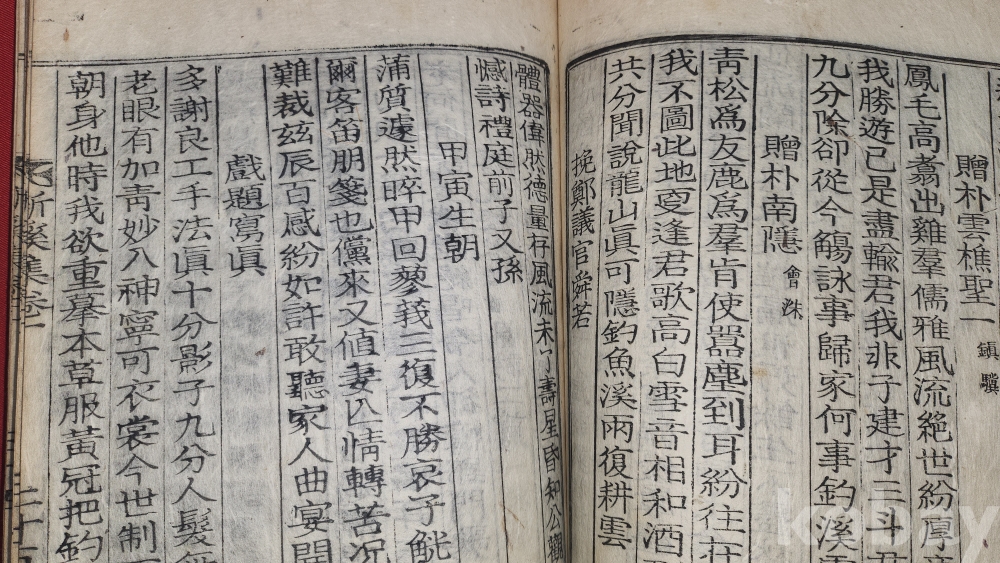 贈朴雲樵聖一 鎭驥
鳳毛高翥出雞羣儒雅風流絶世紛厚
我勝遊已是盡輸君我非子建才三斗君
九分除卻從今觴詠事歸家何事釣溪雲
贈朴南隱 會洙
靑松爲友鹿爲羣肯使囂塵到耳紛往
我不圖此地更逢君歌高白雪音相和酒
共分聞說龍山眞可隱釣魚溪兩復耕雲
挽鄭議官舜若
體器偉然德量存風流未了壽星昏知公觀
憾詩禮庭前子又孫
甲寅生朝
蒲質遽然晬甲回蓼莪三復不勝哀子觥
爾客笛朋箋也儻來又値妻亡情轉苦況
難裁玆辰百感紛如許敢聽家人曲宴開
戱題寫眞
多謝良工手法眞十分影子九分人髮
老眼有加靑妙入神寧可衣裳今世制
朝身他時我欲重摹本草服黃冠把釣
溪集卷一
kobay